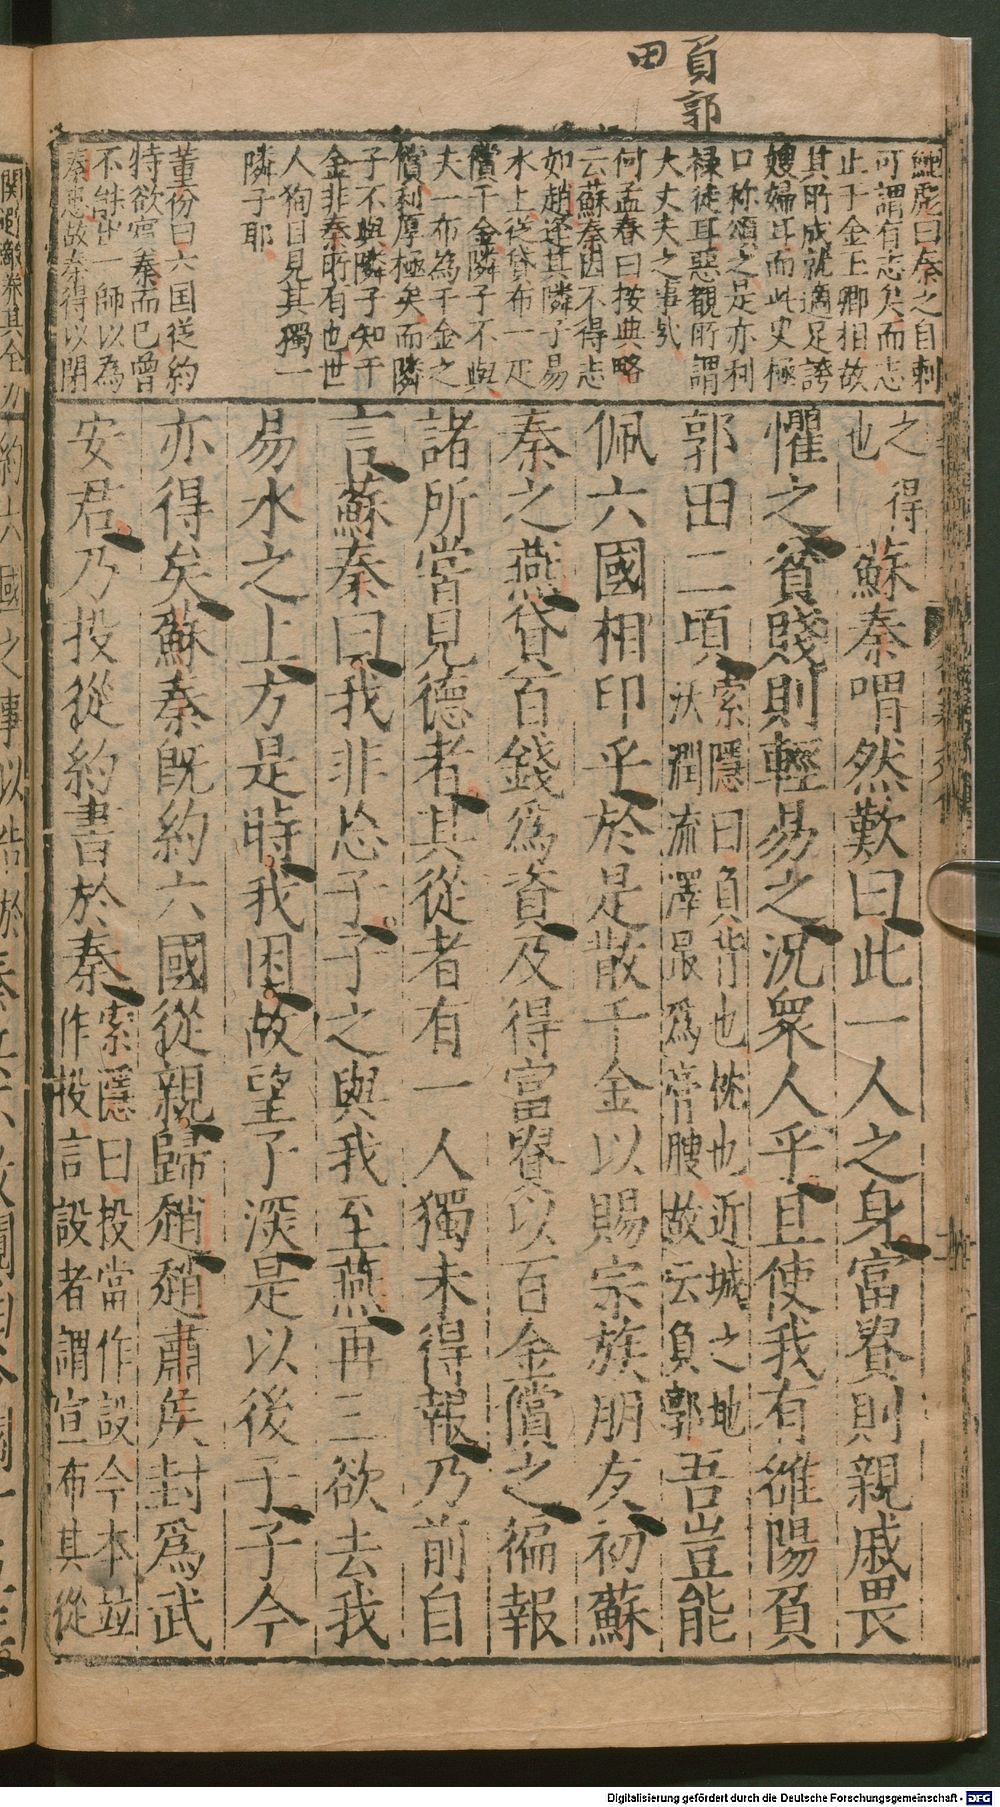 負郭
田
鮑彪曰秦之自刺
可謂有志矣而志
止于金上卿相故
其所成就適足誇
嫂婦耳而此史極
口称頌之是亦利
祿徒耳惡覩所謂
大丈夫之事哉
何孟春曰按典略
云蘇秦因不得志
如趙逢其隣子易
水上從貸布一疋
償千金隣子不與
夫一布為千金之
償利厚極矣而隣
子不與隣子知千
金非秦所有也世
人狥目見其獨一
隣子耶
董份曰六国従約
特欲賓秦而已曾
不能出一師以為
秦患故秦得以閉
之得
也
蘇秦喟然歎曰此一人之身富貴則親戚畏
懼之貧賤則輕易之況衆人乎且使我有雒陽負
郭田二頃
索隱曰負背也枕也近城之地
沃潤流澤最爲膏腴故云負郭
吾豈能
佩六國相印乎於是散千金以賜宗族朋友初蘇
秦之燕貸百錢爲資及得富貴以百金償之徧報
諸所嘗見德者其從者有一人獨未得報乃前自
言蘇秦曰我非忘子子之與我至燕再三欲去我
易水之上方是時我困故望子深是以後子子今
亦得矣蘇秦旣約六國從親歸趙趙肅矦封爲武
安君乃投從約書於秦
索隱曰投當作設今本並
作投言設者謂宣布其從
約六國之事以告於秦
Digitalisierung gefördert durch die Deutsche Forschungsgemeinschaft - DFG